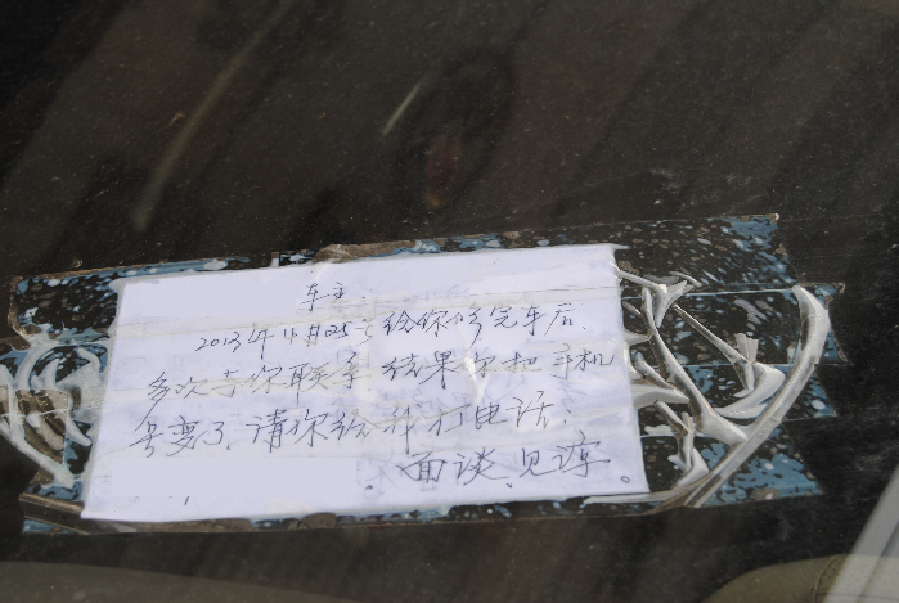 车主
2013年11月25号给你修完车后、
多次与你联系 结果你把手机
号变了、请你给我打电话、
面谈、见谅。